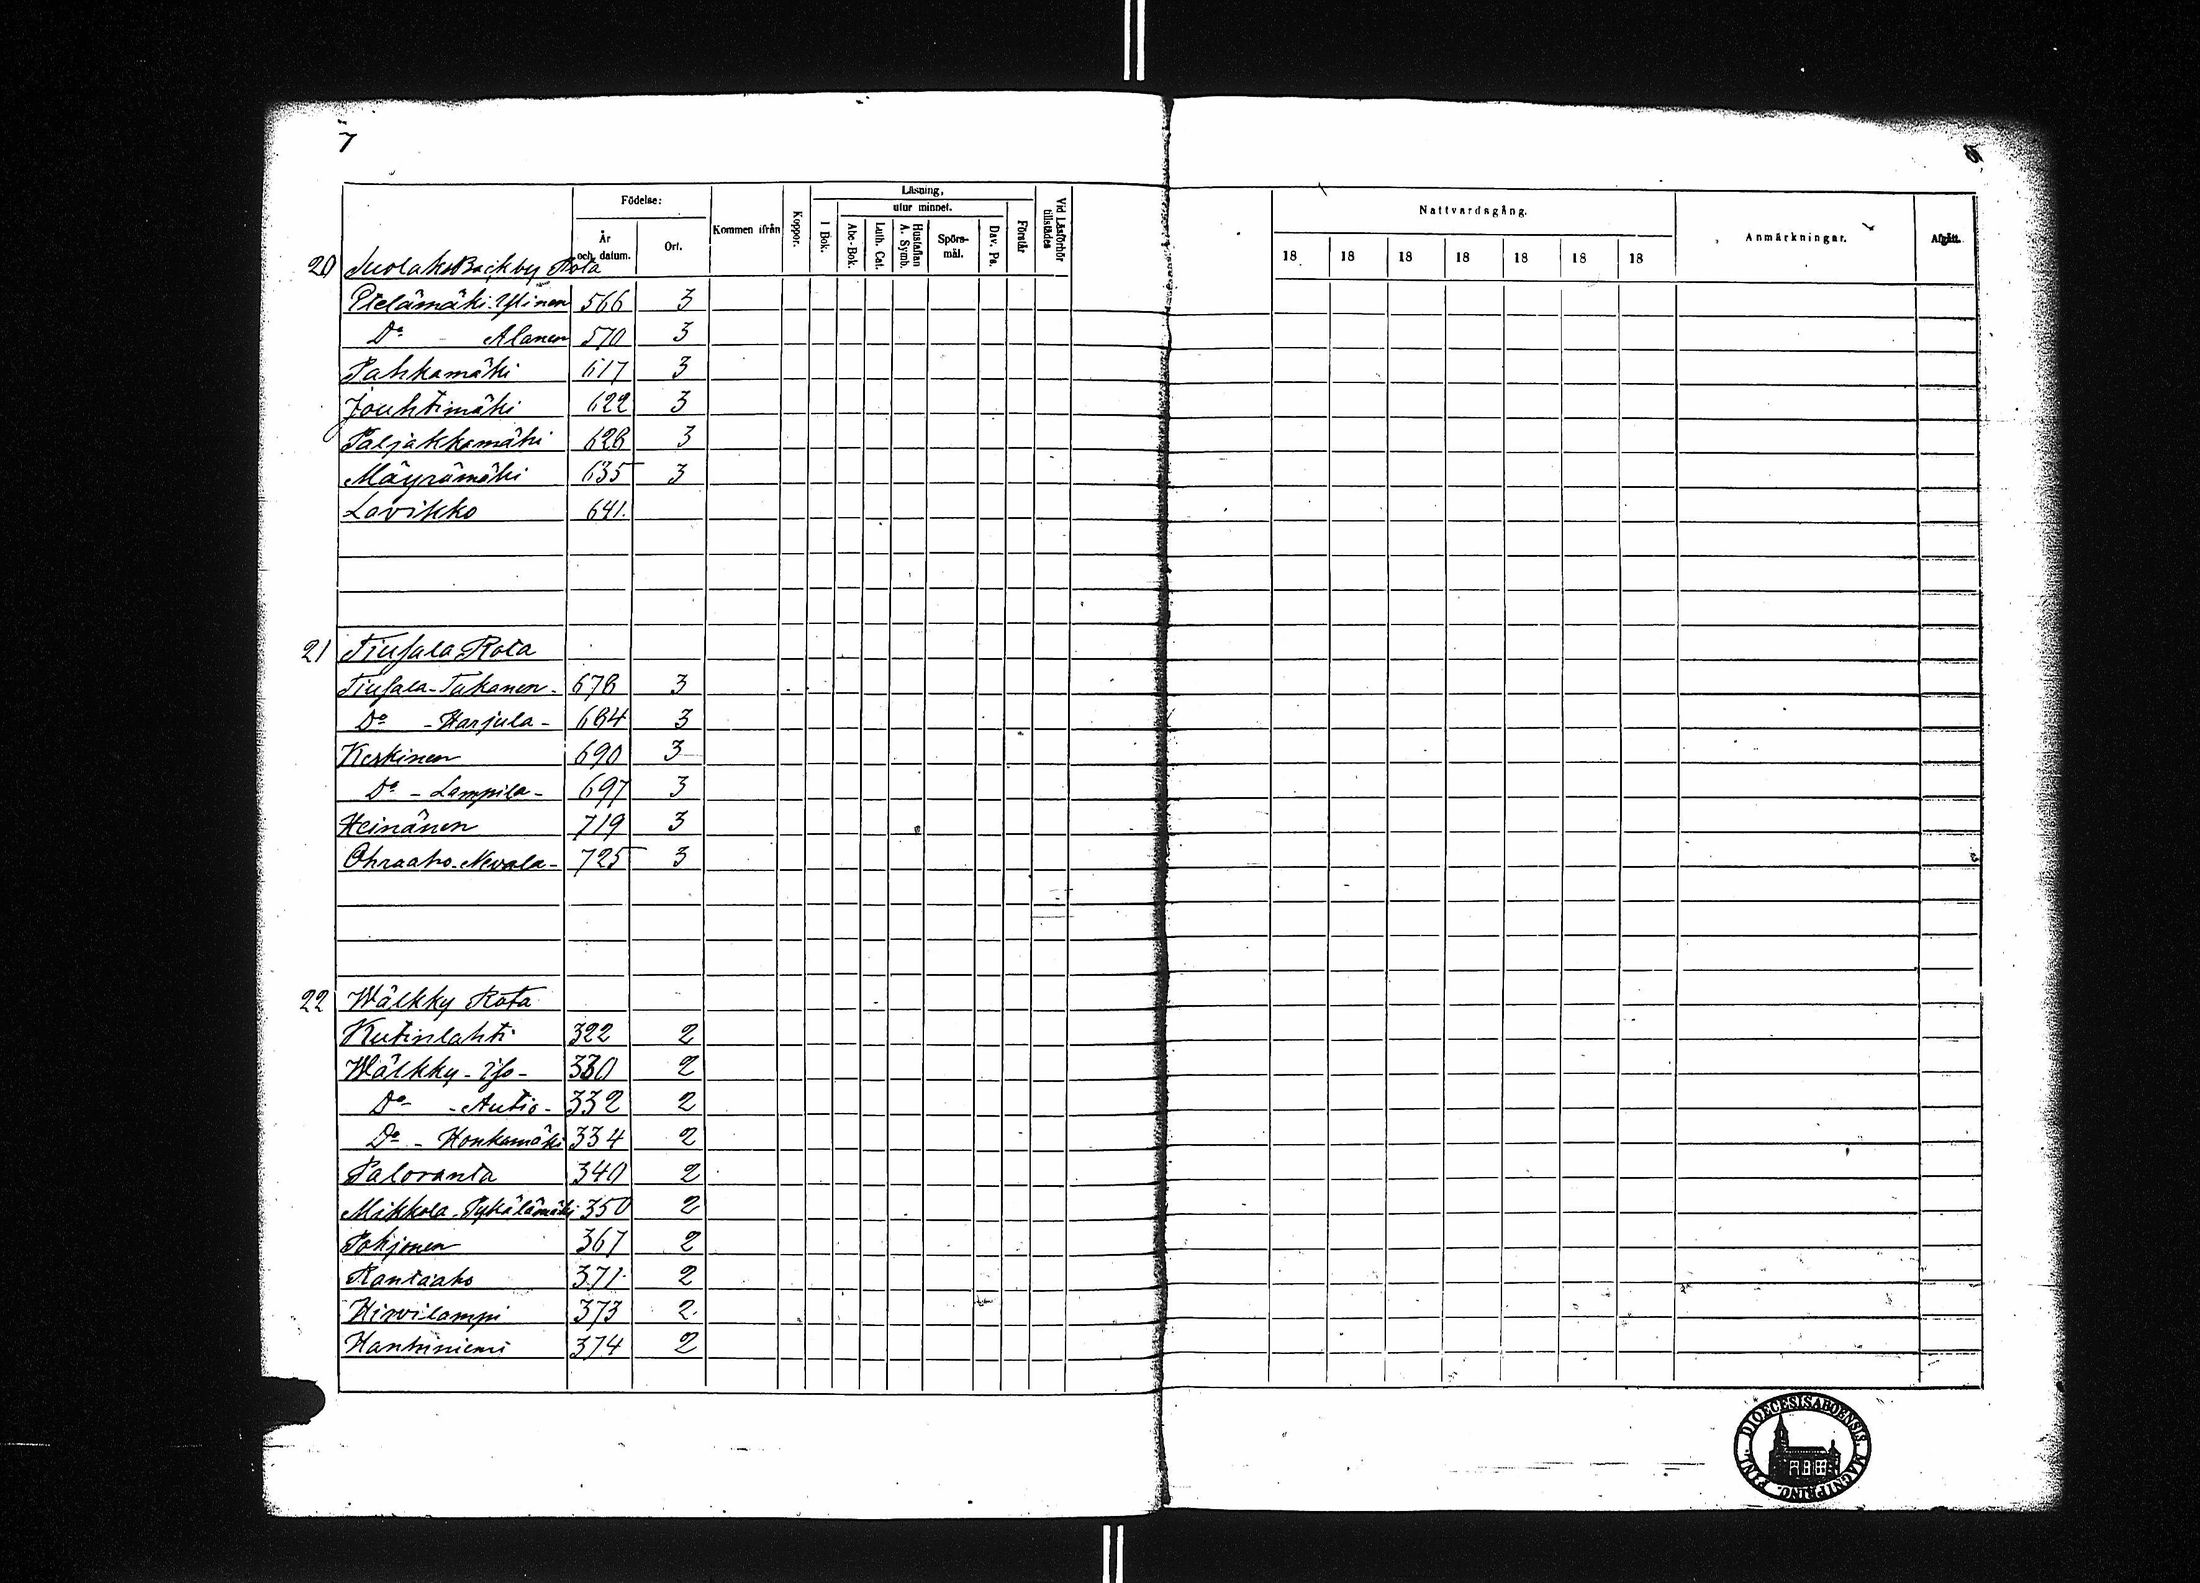 7
Födelse:
År och datum.
Ort.
Kommen ifrån
Koppor.
Läsning,
utur minnet.
I Bok.
Abc-Bok.
Luth. Cat.
Hustaflan A. Symb.
Spörs-mål.
Dav. Ps.
Förstår
Vid Läsförhör tillstädes
Nattvardsgång.
18 18 18 18 18 18 18
Anmärkningar.
Afgått.
20 Backby Rota
Pielämäki-Ylinen 566 3
Do - Alanen 570 3
Pahkamäki 617 3
Jouhtimäki 622 3
Paljakkamäki 628 3
Mäyrämäki 635 3
Lavikko 641.
21 Tiusala Rota
Tiusala-Takanen- 678 3
Do - Harjula - 684 3
Keskinen 690 3
Do - Lampila - 697 3
Heinänen 719 3
Ohraaho-Nevala- 725 3
22 Wälkky Rota
Kutinlahti 322 2
Wälkky-Iso- 330 2
Do - Autio- 332 2
Do - Honkamäki 334 2
Paloranta 340 2
Mikkola-Pykälämäki 350 2
Pohjonen 367 2
Rantaaho 371 2
Hirvilampi 373 2.
374 2
DIOECESIS ABOENSIS. MAGNI PRINC. FINL.